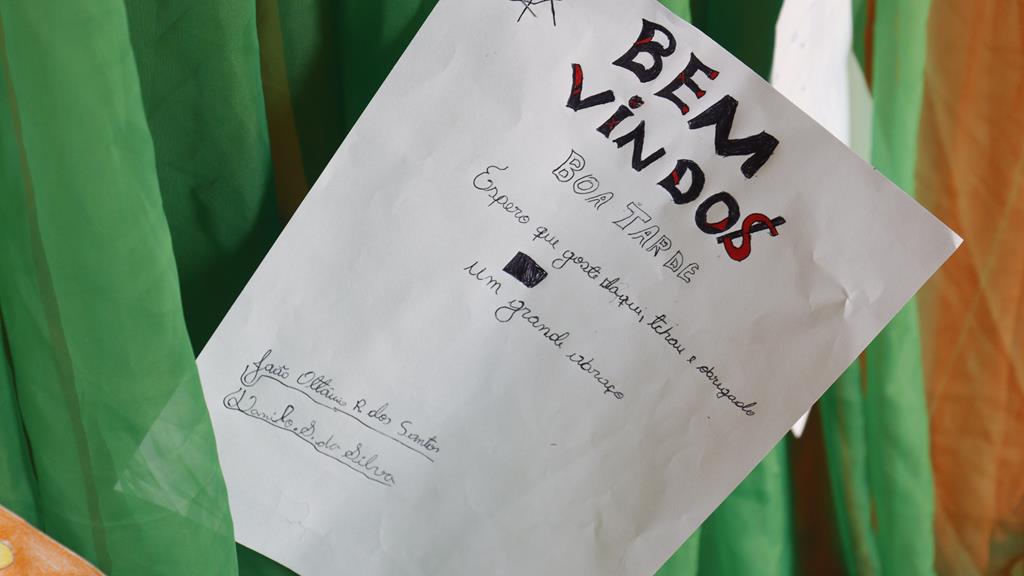 BEM
VINDOS
BOA TARDE
Espero que goste daqui, tchau e obrigado
um grande abraço
João Ottavio R dos Santos
Danilo S. da Silva